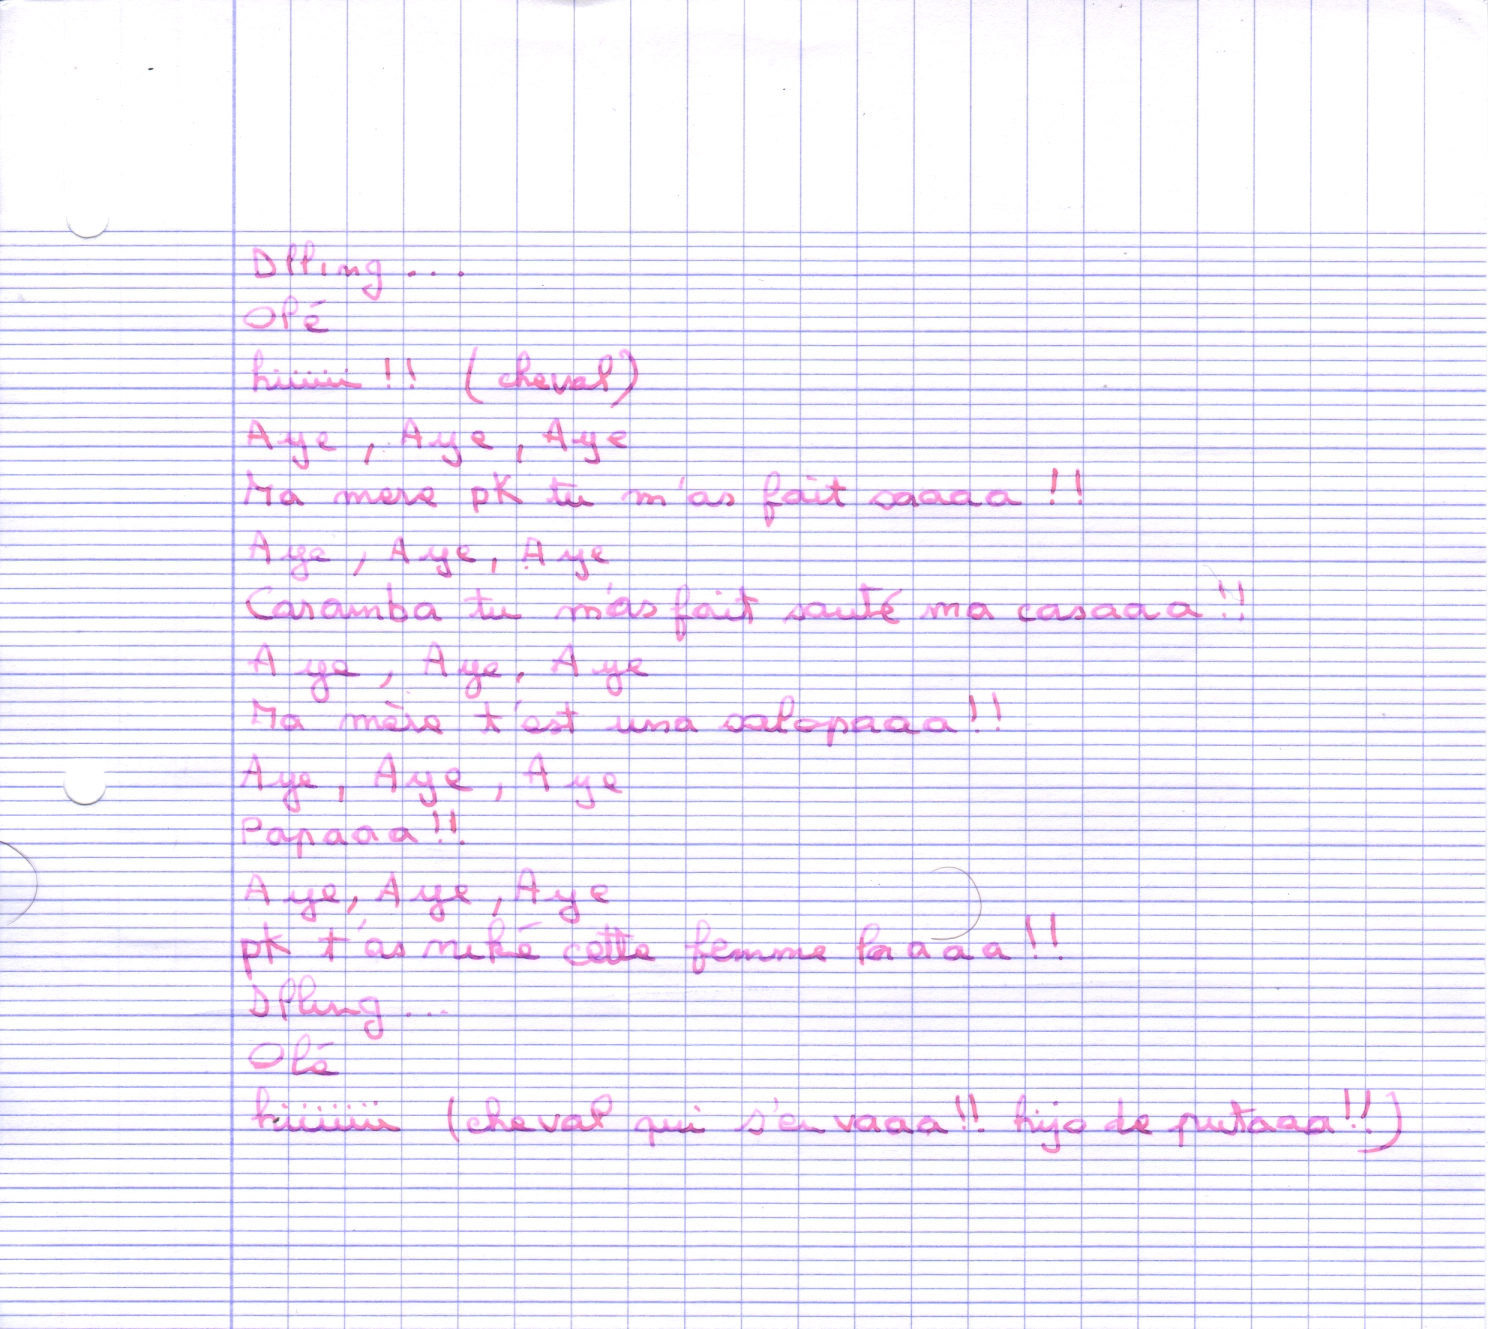 Dlling...
Olé
hiiiii !! (cheval)
Aye, Aye, Aye
Ma mere pk tu m'as fait saaaa !!
Aye, Aye, Aye
Caramba tu m'as fait sauté ma casaaa !!
Aye, Aye, Aye
Ma mère t'est una salopaaa !!
Aye, Aye, Aye
Papaaa !!
Aye, Aye, Aye
pk t'as niké cette femme laaaa !!
Dlling...
Olé
hiiiiiii (cheval qui s'en vaaa !! hijo de putaaa !!)